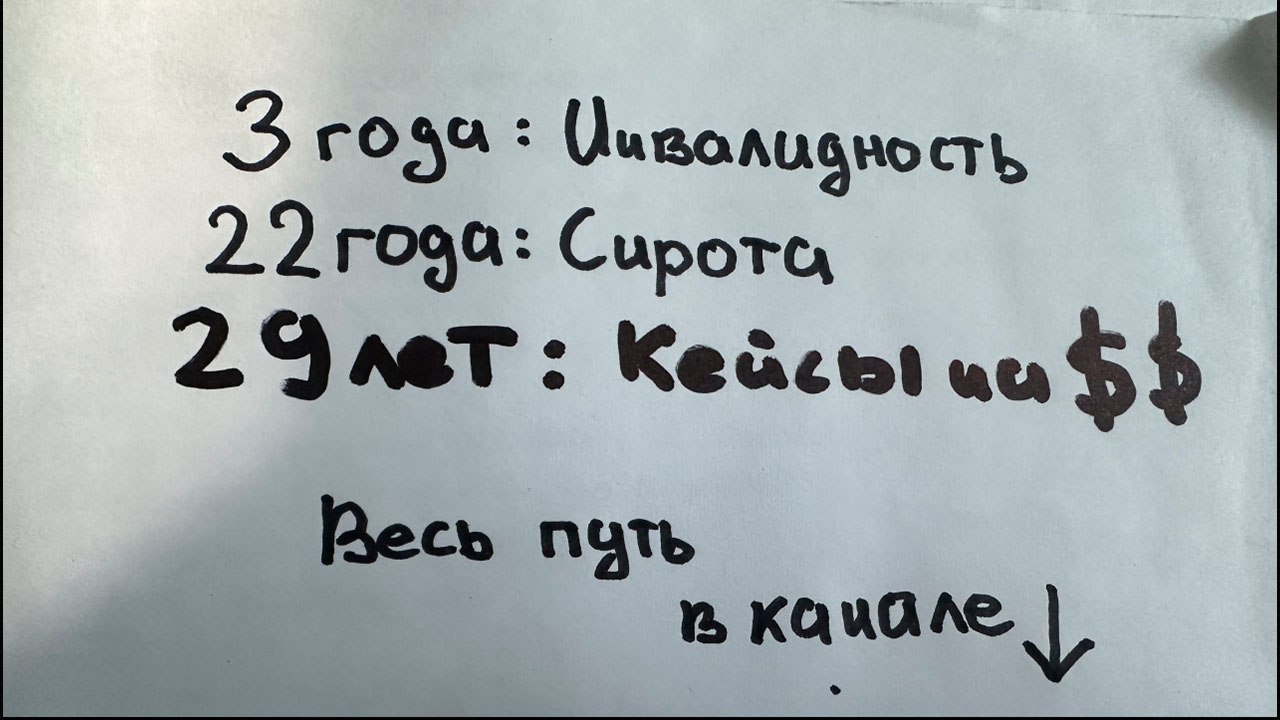 3 года: Инвалидность
22 года: Сирота
29 лет: Кейсы на $$
Весь путь
в канале ↓